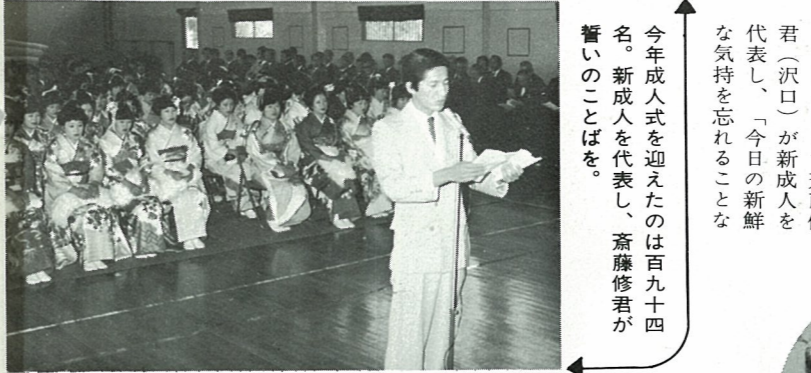 君（沢口）が新成人を
代表し、「今日の新鮮
な気持を忘れることな
今年成人式を迎えたのは百九十四
名。新成人を代表し、斎藤修君が
誓いのことばを。